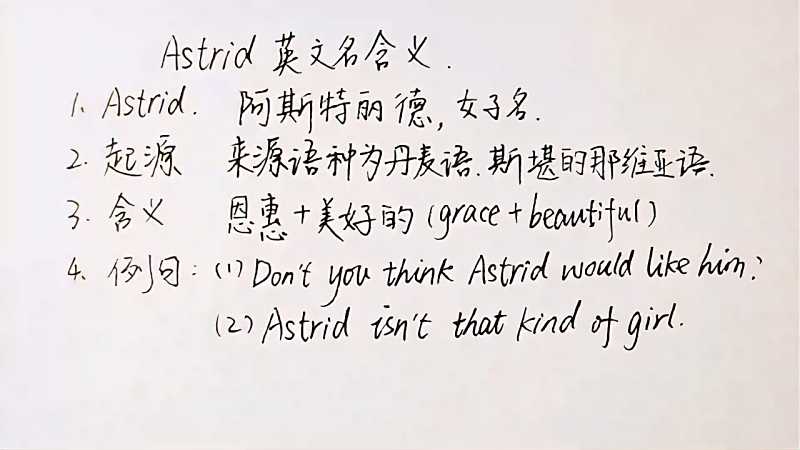 Astrid 英文名含义.
1. Astrid. 阿斯特丽德, 女子名.
2. 起源 来源语种为丹麦语.斯堪的那维亚语.
3. 含义 恩惠+美好的 (grace+beautiful)
4. 例句: (1) Don't you think Astrid would like him?
(2) Astrid isn't that kind of girl.